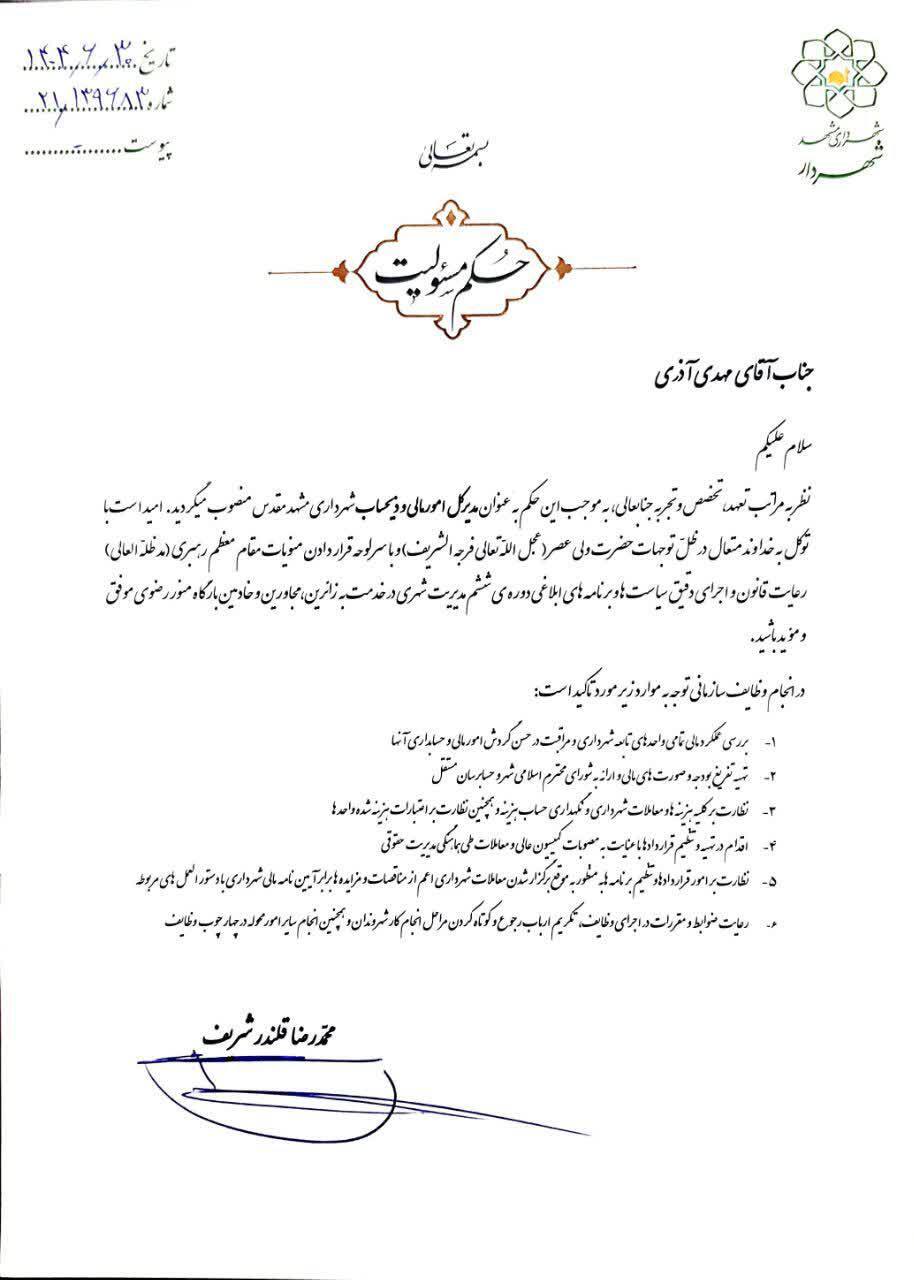 تاریخ ۱۴۰۴/۶/۳۰
شماره ۲۱/۱۳۹۶۸۳
پیوست -
شهرداری مشهد
شهردار
بسمه تعالی
حکم مسئولیت
جناب آقای مهدی آذری
سلام علیکم
نظر به مراتب تعهد، تخصص و تجربه جنابعالی، به موجب این حکم به عنوان مدیرکل امور مالی و ذیحساب شهرداری مشهد مقدس منصوب میگردید. امید است با
توکل به خداوند متعال در ظلّ توجهات حضرت ولی عصر (عجل الله تعالی فرجه الشریف) و با سرلوحه قرار دادن منویات مقام معظم رهبری (مد ظلّه العالی)
رعایت قانون و اجرای دقیق سیاست ها و برنامه های ابلاغی دوره ی ششم مدیریت شهری در خدمت به زائرین، مجاورین و خادمین بارگاه منور رضوی موفق
و موید باشید.
در انجام وظایف سازمانی توجه به موارد زیر مورد تاکید است:
۱- بررسی عملکرد مالی تمامی واحدهای تابعه شهرداری و مراقبت در حسن گردش امور مالی و حسابداری آنها
۲- تهیه تفریغ بودجه و صورت های مالی و ارائه به شورای محترم اسلامی شهر و حسابرسان مستقل
۳- نظارت بر کلیه هزینه ها و معاملات شهرداری و نگهداری حساب هزینه و همچنین نظارت بر اعتبارات هزینه شده واحدها
۴- اقدام در تهیه و تنظیم قراردادها با عنایت به مصوبات کمیسیون عالی و معاملات طی هماهنگی مدیریت حقوقی
۵- نظارت بر امور قراردادها و تنظیم برنامه ها به منظور به موقع برگزار شدن معاملات شهرداری اعم از مناقصات و مزایده ها برابر آیین نامه مالی شهرداری با دستور العمل های مربوطه
۶- رعایت ضوابط و مقررات در اجرای وظایف، تکریم ارباب رجوع و کوتاه کردن مراحل انجام کار شهروندان و همچنین انجام سایر امور محوله در چهارچوب وظایف
محمدرضا قلندر شریف